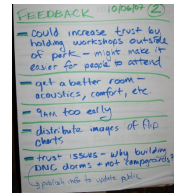 FEEDBACK 10/06/07 2
- could increase trust by
holding workshops outside
of park - might make it
easier for people to attend
- get a better room -
acoustics, comfort, etc
- 9AM too early
- distribute images of flip
charts
- trust issues - why building
DNC dorms + not campgrounds?
publish info to update public